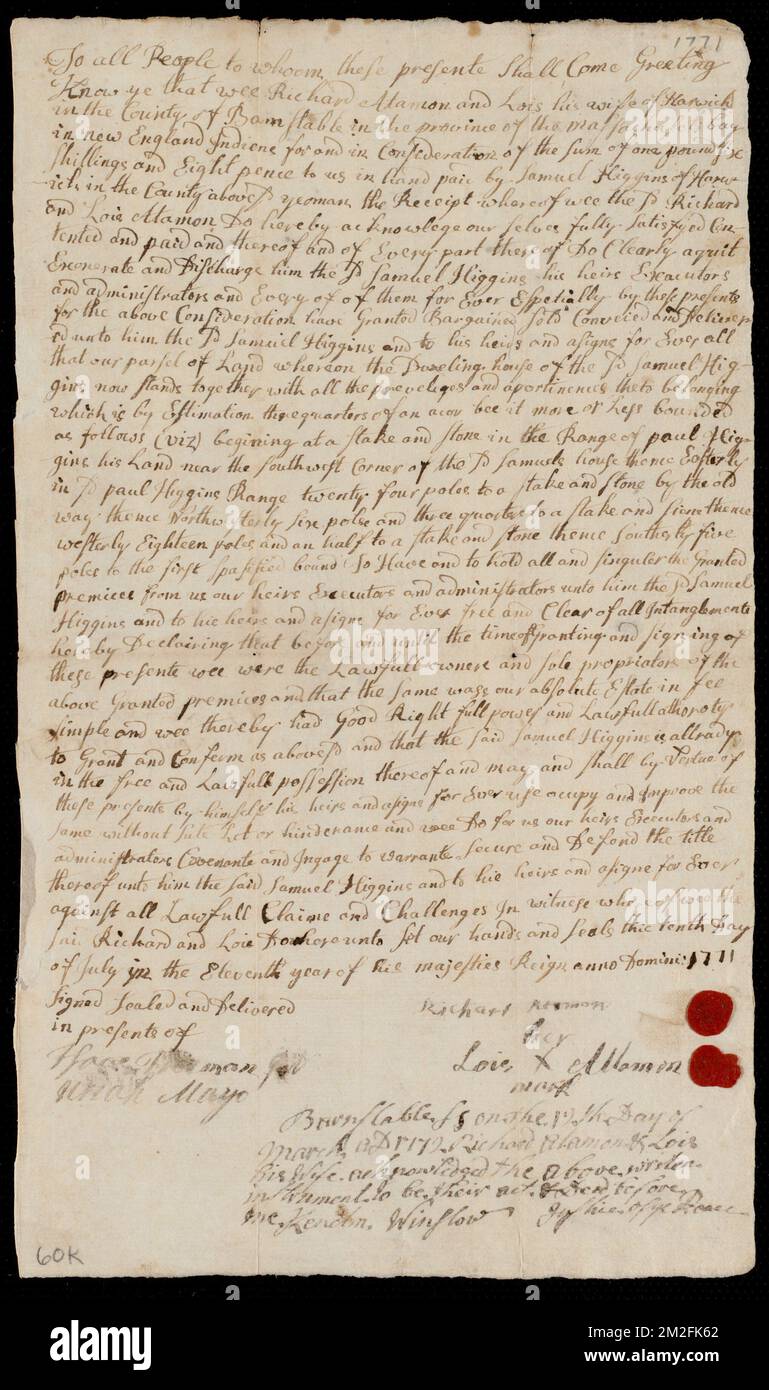 1771
To all People to whom these presents Shall Come Greeting
Know ye that wee Richard Attamon and Lois his wife of Harwich
in the County of Barnstable in the province of the Massachusets bay
in new England Indiens for and in Consideration of the Sum of one pound six
shillings and Eight pence to us in hand paid by Samuel Higgins of Harw-
ich in the County aboves^d yeoman the Receipt whereof wee the s^d Richard
and Lois Attamon Do hereby acknowlege our selves fully Satisfyed Con-
tented and paid and thereof and of Every part there of Do Clearly aquit
Exonerate and Discharge him the s^d Samuel Higgins his heirs Executors
and administrators and Every of of them for Ever Espetially by these presents
for the above Consideration have Granted Bargained Sold Conveied and Deliver
ed unto him the s^d Samuel Higgins and to his heirs and asigns for Ever all
that our parsel of Land whereon the Dweling house of the s^d Samuel Hig-
gins now stands together with all the preveliges and aportinences theto belonging
which is by Estimation threquarters of an acor bee it more or Less bounded
as follows (viz) begining at a stake and stone in the Range of paul Hig-
gins his Land near the Southwest Corner of the s^d Samuels house thence Easterly
in s^d paul Higgins Range twenty four poles to a stake and stone by the old
way thence Northwesterly six poles and three quarters to a stake and stone thence
westerly Eighteen poles and an half to a stake and stone thence Southerly five
poles to the first spasified bound To Have and to hold all and singuler the Granted
premices from us our heirs Executors and administrators unto him the s^d Samuel
Higgins and to his heirs and asigns for Ever free and Clear of all Intanglements
hereby Declairing that before and untill the time of Granting and signing of
these presents wee were the Lawfull owners and sole propriators of the
above Granted premices and that the same wass our absolute Estate in fee
simple and wee thereby had Good Right full power and Lawfull athoroty
to Grant and Confirm as aboves^d and that the said Samuel Higgins is allrady
in the free and Lawfull possession thereof and may and shall by Vertue of
these presents by himself his heirs and asigns for Ever use occupy and Improve the
same without Sute Let or hinderance and wee Do for us our heirs Executors and
administrators Covenante and Ingage to warrante Secure and Defend the title
thereof unto him the said Samuel Higgins and to his heirs and asigns for Ever
against all Lawfull Claims and Challenges In witness whereof wee the
said Richard and Lois Do hereunto Set our hands and seals this tenth Day
of July in the Eleventh year of his majesties Reign anno Domini 1771
Signed Sealed and Delivered
in presents of
Richard Attamon
her
Lois X Attamon
mark
Uriah Mayo
Barnstable Ss on the 12th Day of
March AD 1772 Richard Atamon & Lois
his Wife acknowledged the above writen
instrument to be their act & Deed before
me Kenelm Winslow Justice of ye Peace
60K
alamy
Image ID: 2M2FK62
www.alamy.com